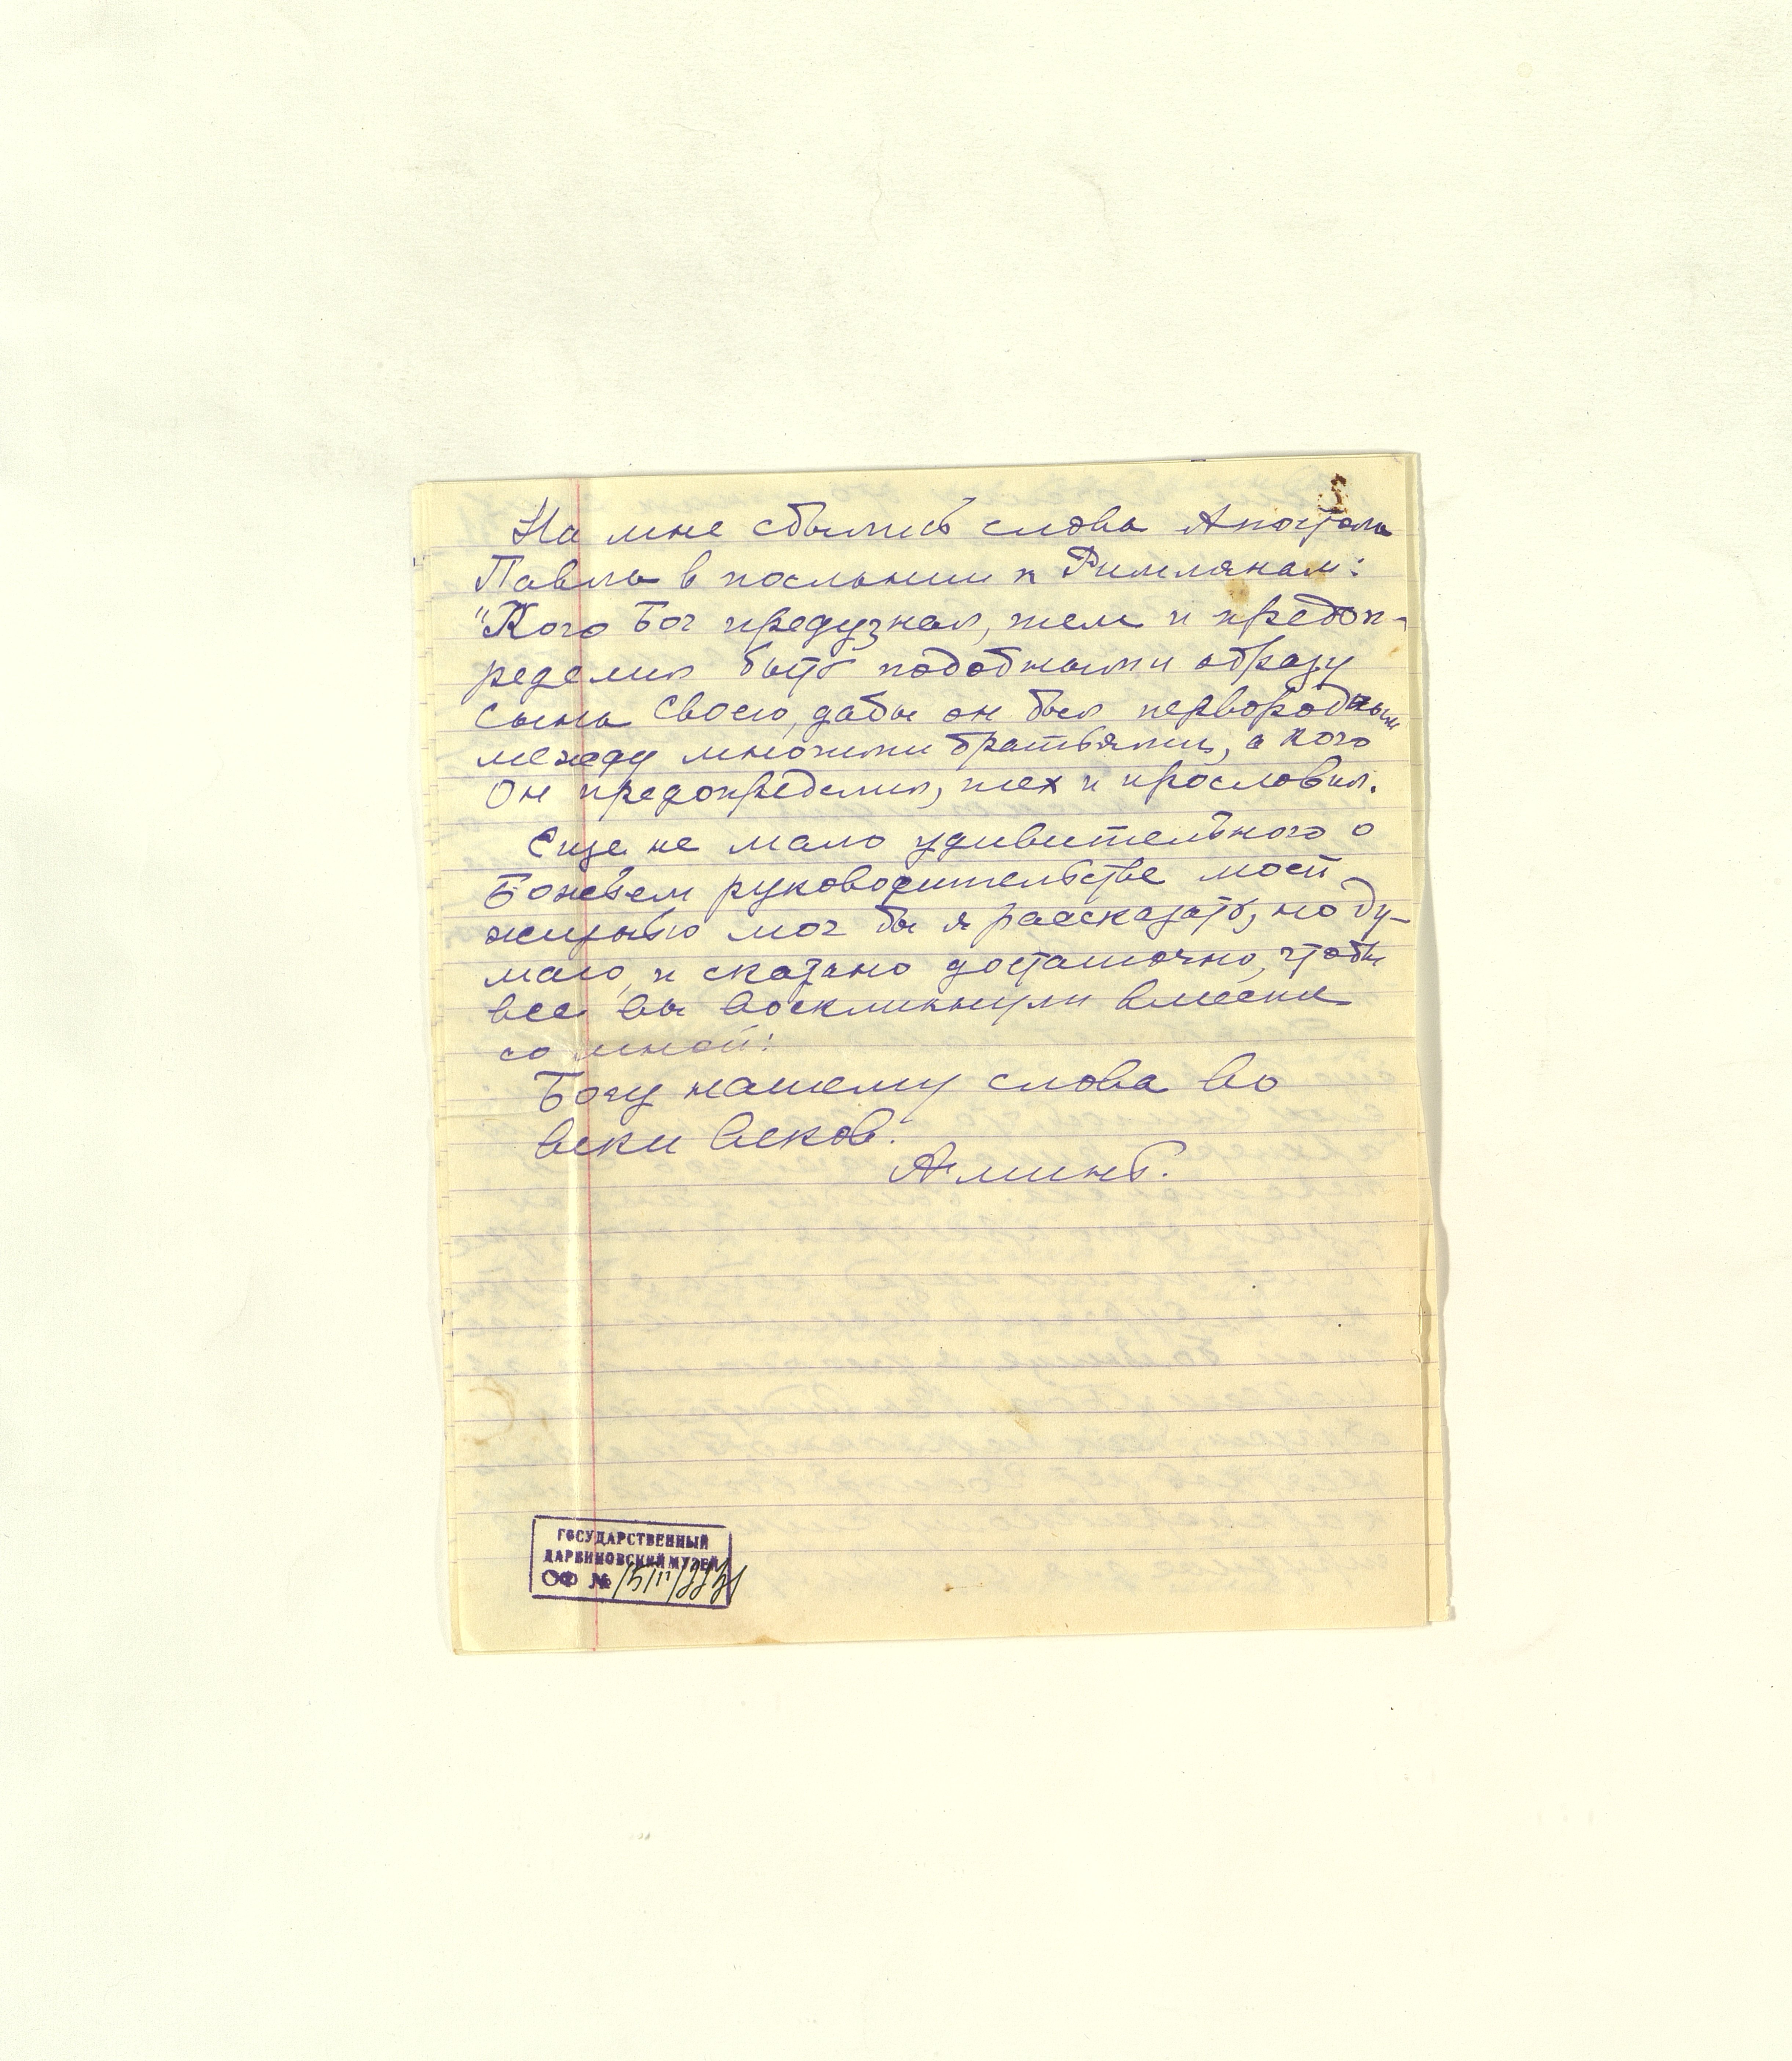 На мне сбылись слова Апостола
Павла в послании к Римлянам:
"Кого Бог предузнал, тем и предоп-
ределил быть подобными образу
сына Своего, дабы он был первородным
между многими братьями, а кого
Он предопределил, тех и прославил.
Еще не мало удивительного о
Божьем руководительстве моей
жизнью мог бы я рассказать, но ду-
маю, и сказано достаточно, чтобы
все вы воскликнули вместе
со мной:
Богу нашему слова во
веки веков.
Аминь.
ГОСУДАРСТВЕННЫЙ
ДАРВИНОВСКИЙ МУЗЕЙ
ОФ №